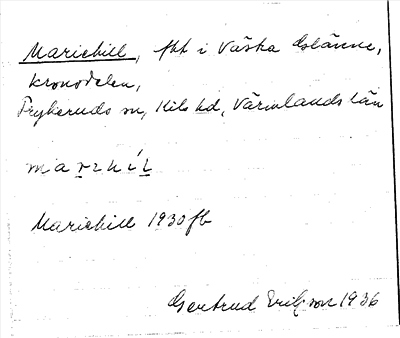 Mariehill, fht i Västra Gslänne,
kronodelen,
Frykeruds sn, Kils hd, Värmlands län
marzhil
Mariehill 1930 fb
Gertrud Erikson 1936